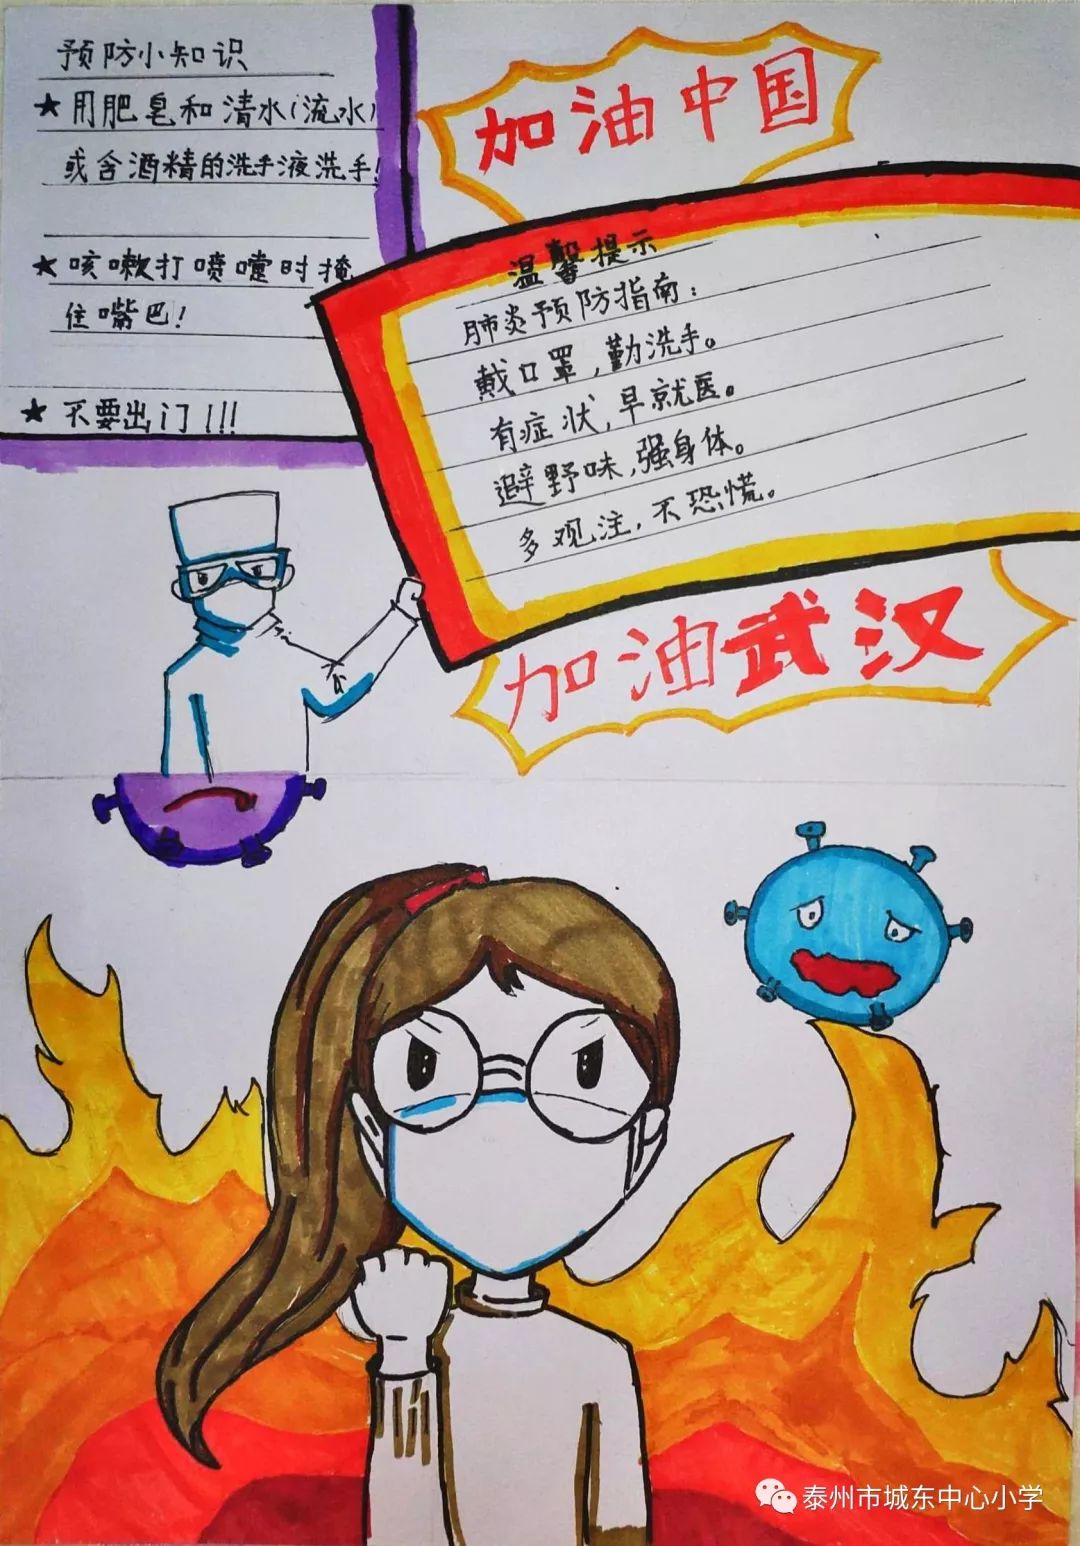 预防小知识
★用肥皂和清水(流水)
或含酒精的洗手液洗手!
★咳嗽打喷嚏时掩
住嘴巴!
★不要出门!!!
加油中国
温馨提示
肺炎预防指南:
戴口罩,勤洗手。
有症状,早就医。
避野味,强身体。
多观注,不恐慌。
加油武汉
泰州市城东中心小学